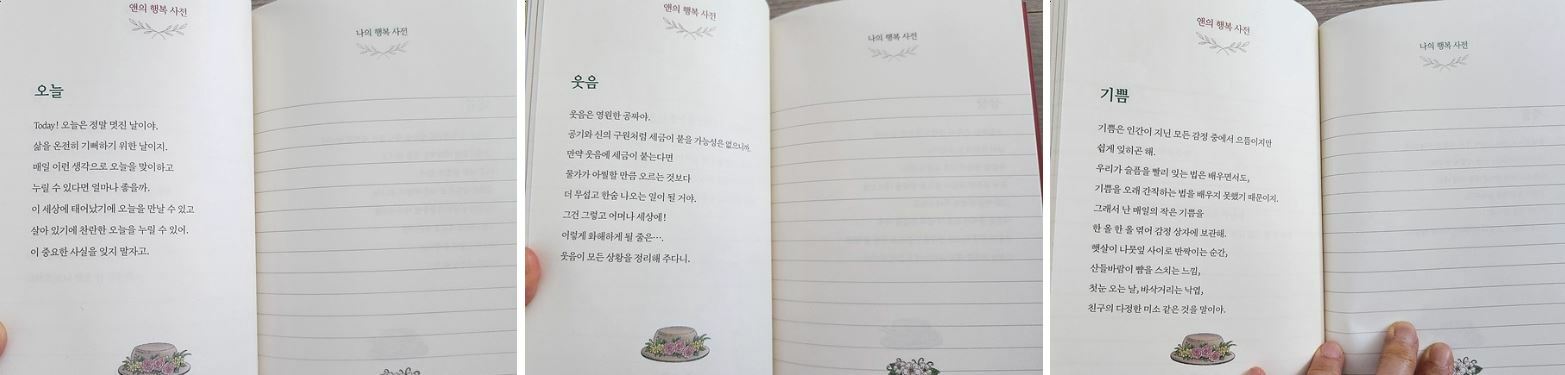 앤의 행복 사전
오늘
Today! 오늘은 정말 멋진 날이야.
삶을 온전히 기뻐하기 위한 날이지.
매일 이런 생각으로 오늘을 맞이하고
누릴 수 있다면 얼마나 좋을까.
이 세상에 태어났기에 오늘을 만날 수 있고
살아 있기에 찬란한 오늘을 누릴 수 있어.
이 중요한 사실을 잊지 말자고.
나의 행복 사전
앤의 행복 사전
웃음
웃음은 영원한 공짜야.
공기와 신의 구원처럼 세금이 붙을 가능성은 없으니까.
만약 웃음에 세금이 붙는다면
물가가 아찔할 만큼 오르는 것보다
더 무섭고 한숨 나오는 일이 될 거야.
그건 그렇고 어머나 세상에!
이렇게 화해하게 될 줄은….
웃음이 모든 상황을 정리해 주다니.
나의 행복 사전
앤의 행복 사전
기쁨
기쁨은 인간이 지닌 모든 감정 중에서 으뜸이지만
쉽게 잊히곤 해.
우리가 슬픔을 빨리 잊는 법은 배우면서도,
기쁨을 오래 간직하는 법을 배우지 못했기 때문이지.
그래서 난 매일의 작은 기쁨을
한 올 한 올 엮어 감정 상자에 보관해.
햇살이 나뭇잎 사이로 반짝이는 순간,
산들바람이 뺨을 스치는 느낌,
첫눈 오는 날, 바삭거리는 낙엽,
친구의 다정한 미소 같은 것을 말이야.
나의 행복 사전